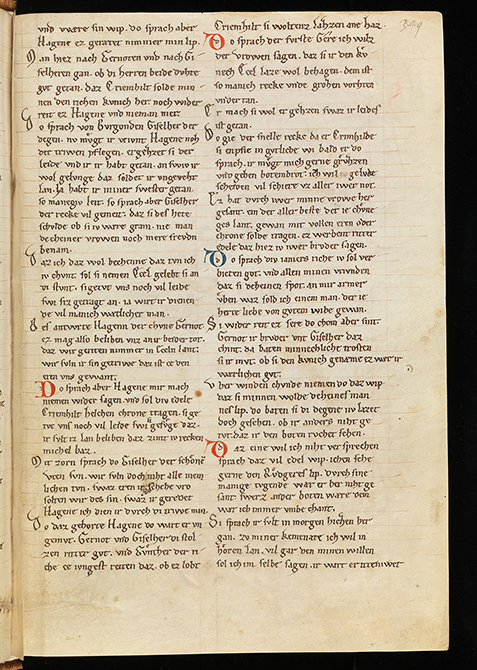 und wære sin wip. do sprach aber
Hagene ez geratet nimmer min lip.
Man hiez nach Gernoten und nach Gi
selheren gan. ob di herren beide duhte
gut getan. daz Criemhilt solde min
nen den richen kunich. her noch wider
reit ez Hagene und nieman mer.
Do sprach von Burgonden Giselher der
degen. nu mugt ir vriunt Hagene noh
der triwen pflegen. ergetzet si der
leide und ir ir habt getan. an swiu ir
wol gelunge daz soldet ir ungeveht
lan. Ja habt ir miner swester getan
so manegiu leit. so sprach aber Giselher
der recke vil gemeit. daz si des hete
schulde ob si iu wære gram. nie man
decheiner vrowen noch mere freuden
benam.
Daz ich daz wol bechenne daz tun ich
iu chunt. sol si nemen Ecel. gelebt si an
di stunt. si getut uns noch vil leide
swi siz getraget an. ja wirt ir dienen
de vil manich wætlicher man.
Des antwurte Hagenen der chune Gernot
ez mag also beliben unz an ir beider tot.
daz wir geriten nimmer in Eceln lant.
wir suln ir sin getriwe daz ist ze den
eren uns gewant.
Do sprach aber Hagene mir mach
niemen wider sagen. und sol diu edele
Criemhilt helchen chrone tragen. si ge
tut uns noch vil leide swi si gefuge daz.
ir sult iz lan beliben daz zimt iu recken
michel baz.
Mit zorn sprach do Giselher der schonen
uten sun. wir suln doch niht alle mein
lichen tun. swaz eren ir geschehe vro
solten wir des sin. swaz ir geredet
Hagene ich dien ir durch di triwe min.
Do daz gehorte Hagene do wart er un
gemut. Gernot und Giselher di stol
zen ritter gut. und Gunther der ri
che ze iungest reiten daz. ob ez lobt
Criemhilt si woltenz lazzen ane haz.
Do sprach der furste Gere ich wilz
der vrowen sagen. daz si ir den ku
nech Ecel laze wol behagen. dem ist
so manich recke under tan.
er mach si wol ergetzen swaz ir leides
ist getan.
Do gie der snelle recke da er Crimhilde
sach
si enpfie in gutliche wi bald er do
sprach. ir mugt mich gerne gruzen
und geben botenbrot.
scheiden vil schiere uz aller iwer not.
Ez hat durch iwer minne vrowe her
gesant. ein der aller beste der ie chune
ges lant. gewan mit vollen eren oder
chrone solde tragen. ez werbent ritter
edele daz hiez iu iwer bruder sagen.
Do sprach diu iamers riche iu sol ver
bieten got. und allen minen vriunden
daz si deheinen spot. an mir armer
uben. waz sold ich einem man. der ie
herce liebe von gutem wibe gewan.
Si wider reit ez sere do chom aber sint.
Gernot ir bruder unt Giselher daz
chint. da baten minnechliche trosten
si ir mut. ob si den kunich genæme ez wær ir
wærlichen gut.
Uber winden chunde niemen do daz wip.
daz si minnen wolde deheines man
nes lip. do baten si di degene nu lazet
doch gesehen. ob ir anders niht ge
tut. daz ir den boten rucket sehen.
Daz enewil ich niht versprechen
sprach daz vil edel wip. ichen sehe
gerne den Rudegeres lip. durch sine
manige tugende wær er her niht ge
sant. swerz ander boten wære dem
wær ich immer umbe chant.
Si sprach ir sult in morgen heizen her
gan. zo miner kemenate ich wil in
horen lan. vil gar den minen willen
sol ich im selbe sagen. ir wart erniwet